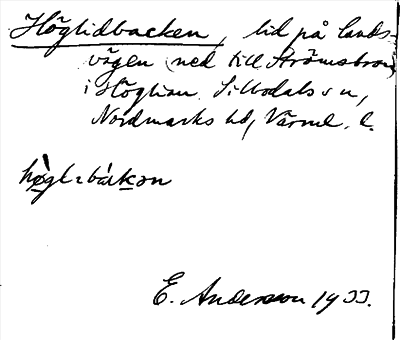 Höglidbacken, lid på lands-
vägen (ned till Strömsbron)
i Höglian, Sillbodals sn,
Nordmarks hd, Värml. l.
E. Andersson 1933.